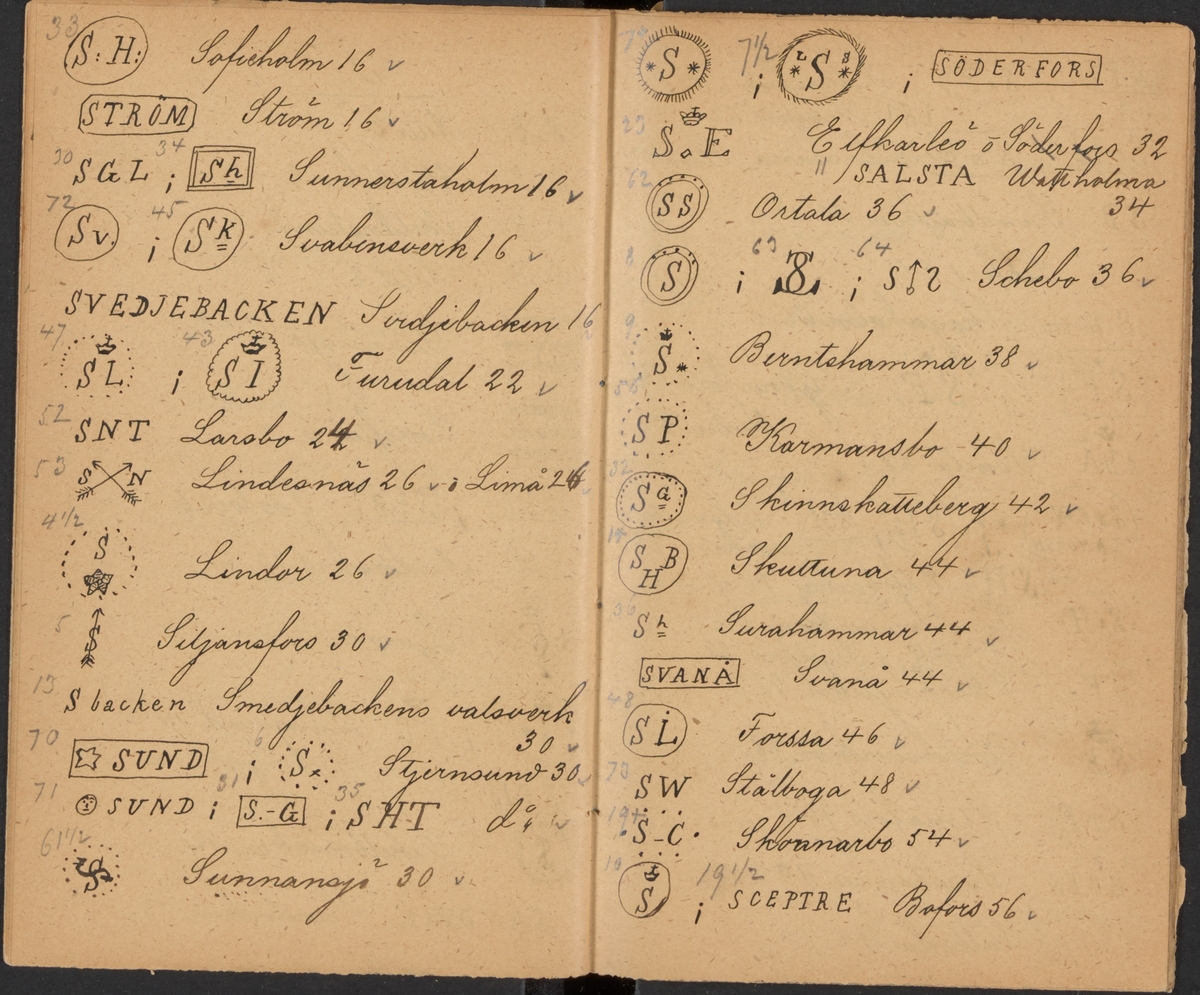 33 S: H: Sofieholm 16 v
STRÖM Ström 16 v
30 SGL ; 34 Sh Sunnerstaholm 16 v
72 Sv. ; 45 Sk Svabensverk 16 v
SVEDJEBACKEN Svedjebacken 16
47 SL ; 43 SI Furudal 22 v
52 SNT Larsbo 24 v
53 S N Lindesnäs 26 v ö Limå 26
4 1/2 S Lindor 26 v
5 S Siljansfors 30 v
13 S backen Smedjebackens valsverk
30 v
70 SUND ; 6 Sx Stjernsund 30 v
71 SUND ; 31 S.-G ; 35 SHT do v
61 1/2 S Sunnansjö 30 v
7 *S* ; 7 1/2 L S * S * ; SÖDERFORS
23 S.E Elfkarleö ö Söderfors 32
" SALSTA Wattholma
62 SS Ortala 36 v 34
8 S ; 63 S ; 64 S↑S Schebo 36 v
9 S* Berntshammar 38 v
58 SP Karmansbo - 40 v
32 SG Skinnskatteberg 42 v
14 SHB Skultuna 44 v
36 Sh Surahammar 44 v
SVANÅ Svanå 44 v
48 SL Forssa 46 v
73 SW Stålboga 48 v
19 S-C Skönnarbo 54 v
19 S ; 19 1/2 SCEPTRE Bofors 56 v